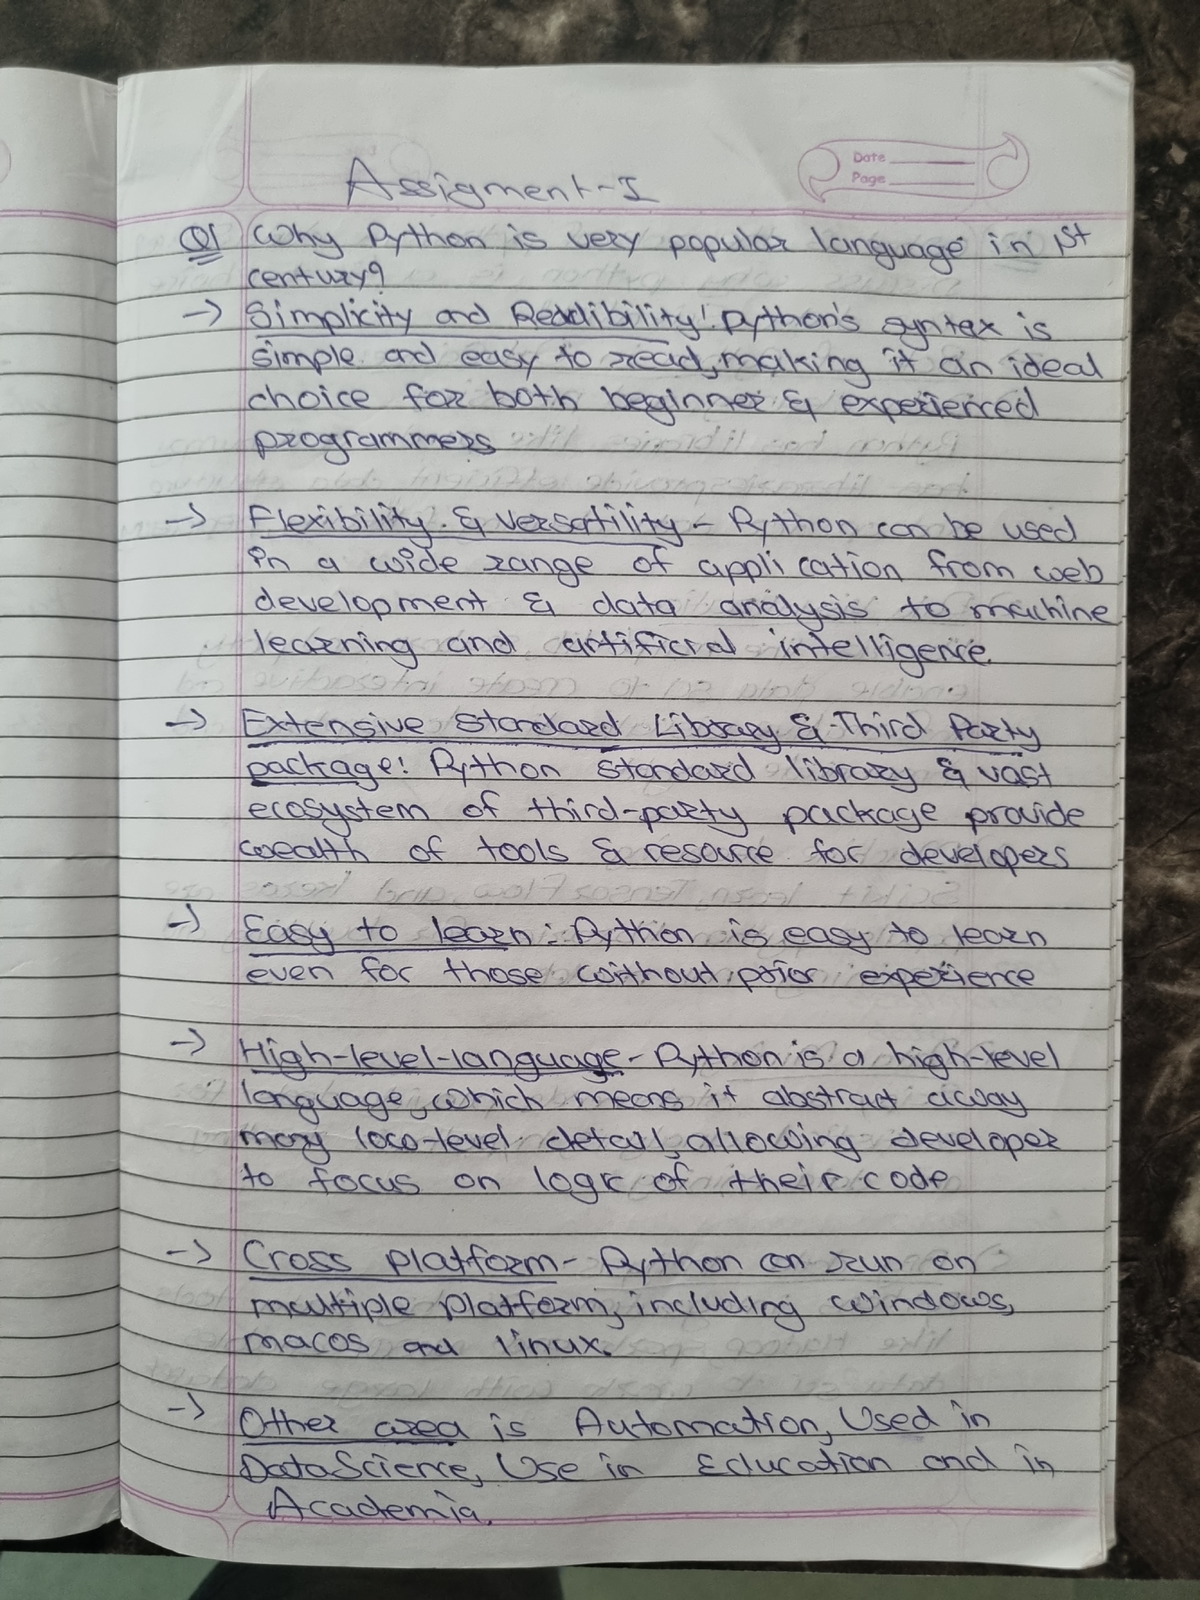 Date
Page
Assigment-I
Q1 Why Python is very popular language in 1st
century?
→ Simplicity and Readibility! Python's syntax is
simple and easy to read, making it an ideal
choice for both beginner & experienced
programmers
→ Flexibility & Versatility - Python can be used
in a wide range of application from web
development & data analysis to machine
learning and artificial intelligence.
→ Extensive Standard Library & Third Party
package: Python standard library & vast
ecosystem of third-party package provide
wealth of tools & resource for developers
→ Easy to learn: Python is easy to learn
even for those without prior experience
→ High-level-language - Python is a high-level
language, which means it abstract away
many low-level detail, allowing developer
to focus on logic of their code
→ Cross Platform - Python can run on
multiple platform, including windows,
macos and linux.
→ Other area is Automation, Used in
DataScience, Use in Education and in
Academia.